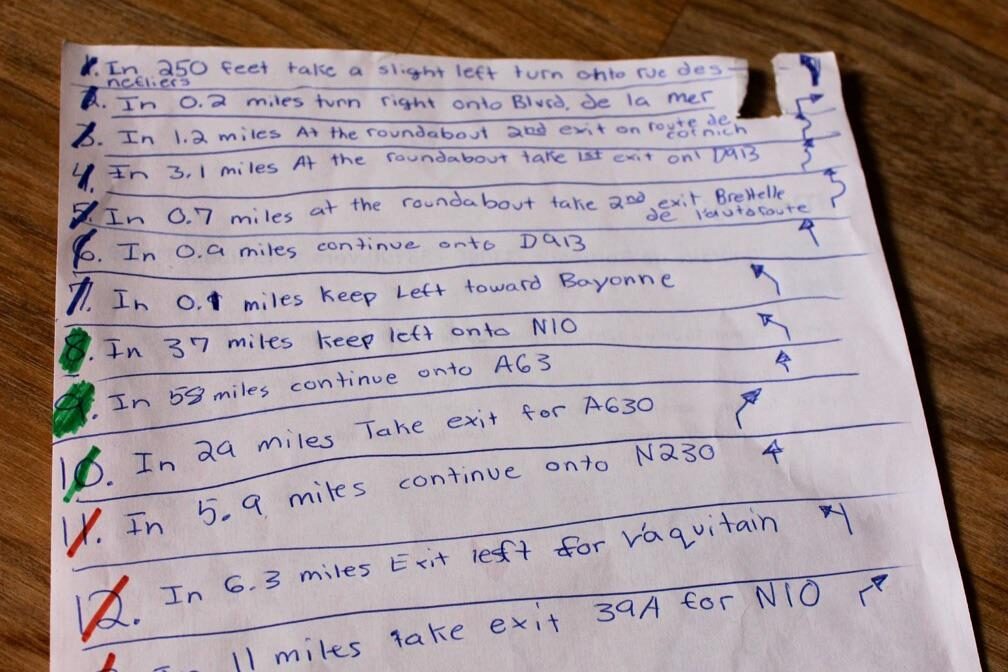 1. In 250 feet take a slight left turn onto rue des
nefliers
2. In 0.2 miles turn right onto Blvrd. de la mer
3. In 1.2 miles At the roundabout 2nd exit on route de
cornich
4. In 3.1 miles At the roundabout take 1st exit on D913
5. In 0.7 miles at the roundabout take 2nd exit Bretelle
de l'autoroute
6. In 0.9 miles continue onto D913
7. In 0.1 miles Keep Left toward Bayonne
8. In 37 miles keep left onto N10
9. In 58 miles continue onto A63
10. In 29 miles Take exit for A630
11. In 5.9 miles continue onto N230
12. In 6.3 miles Exit left for l'aquitain
In 11 miles take exit 39A for N10